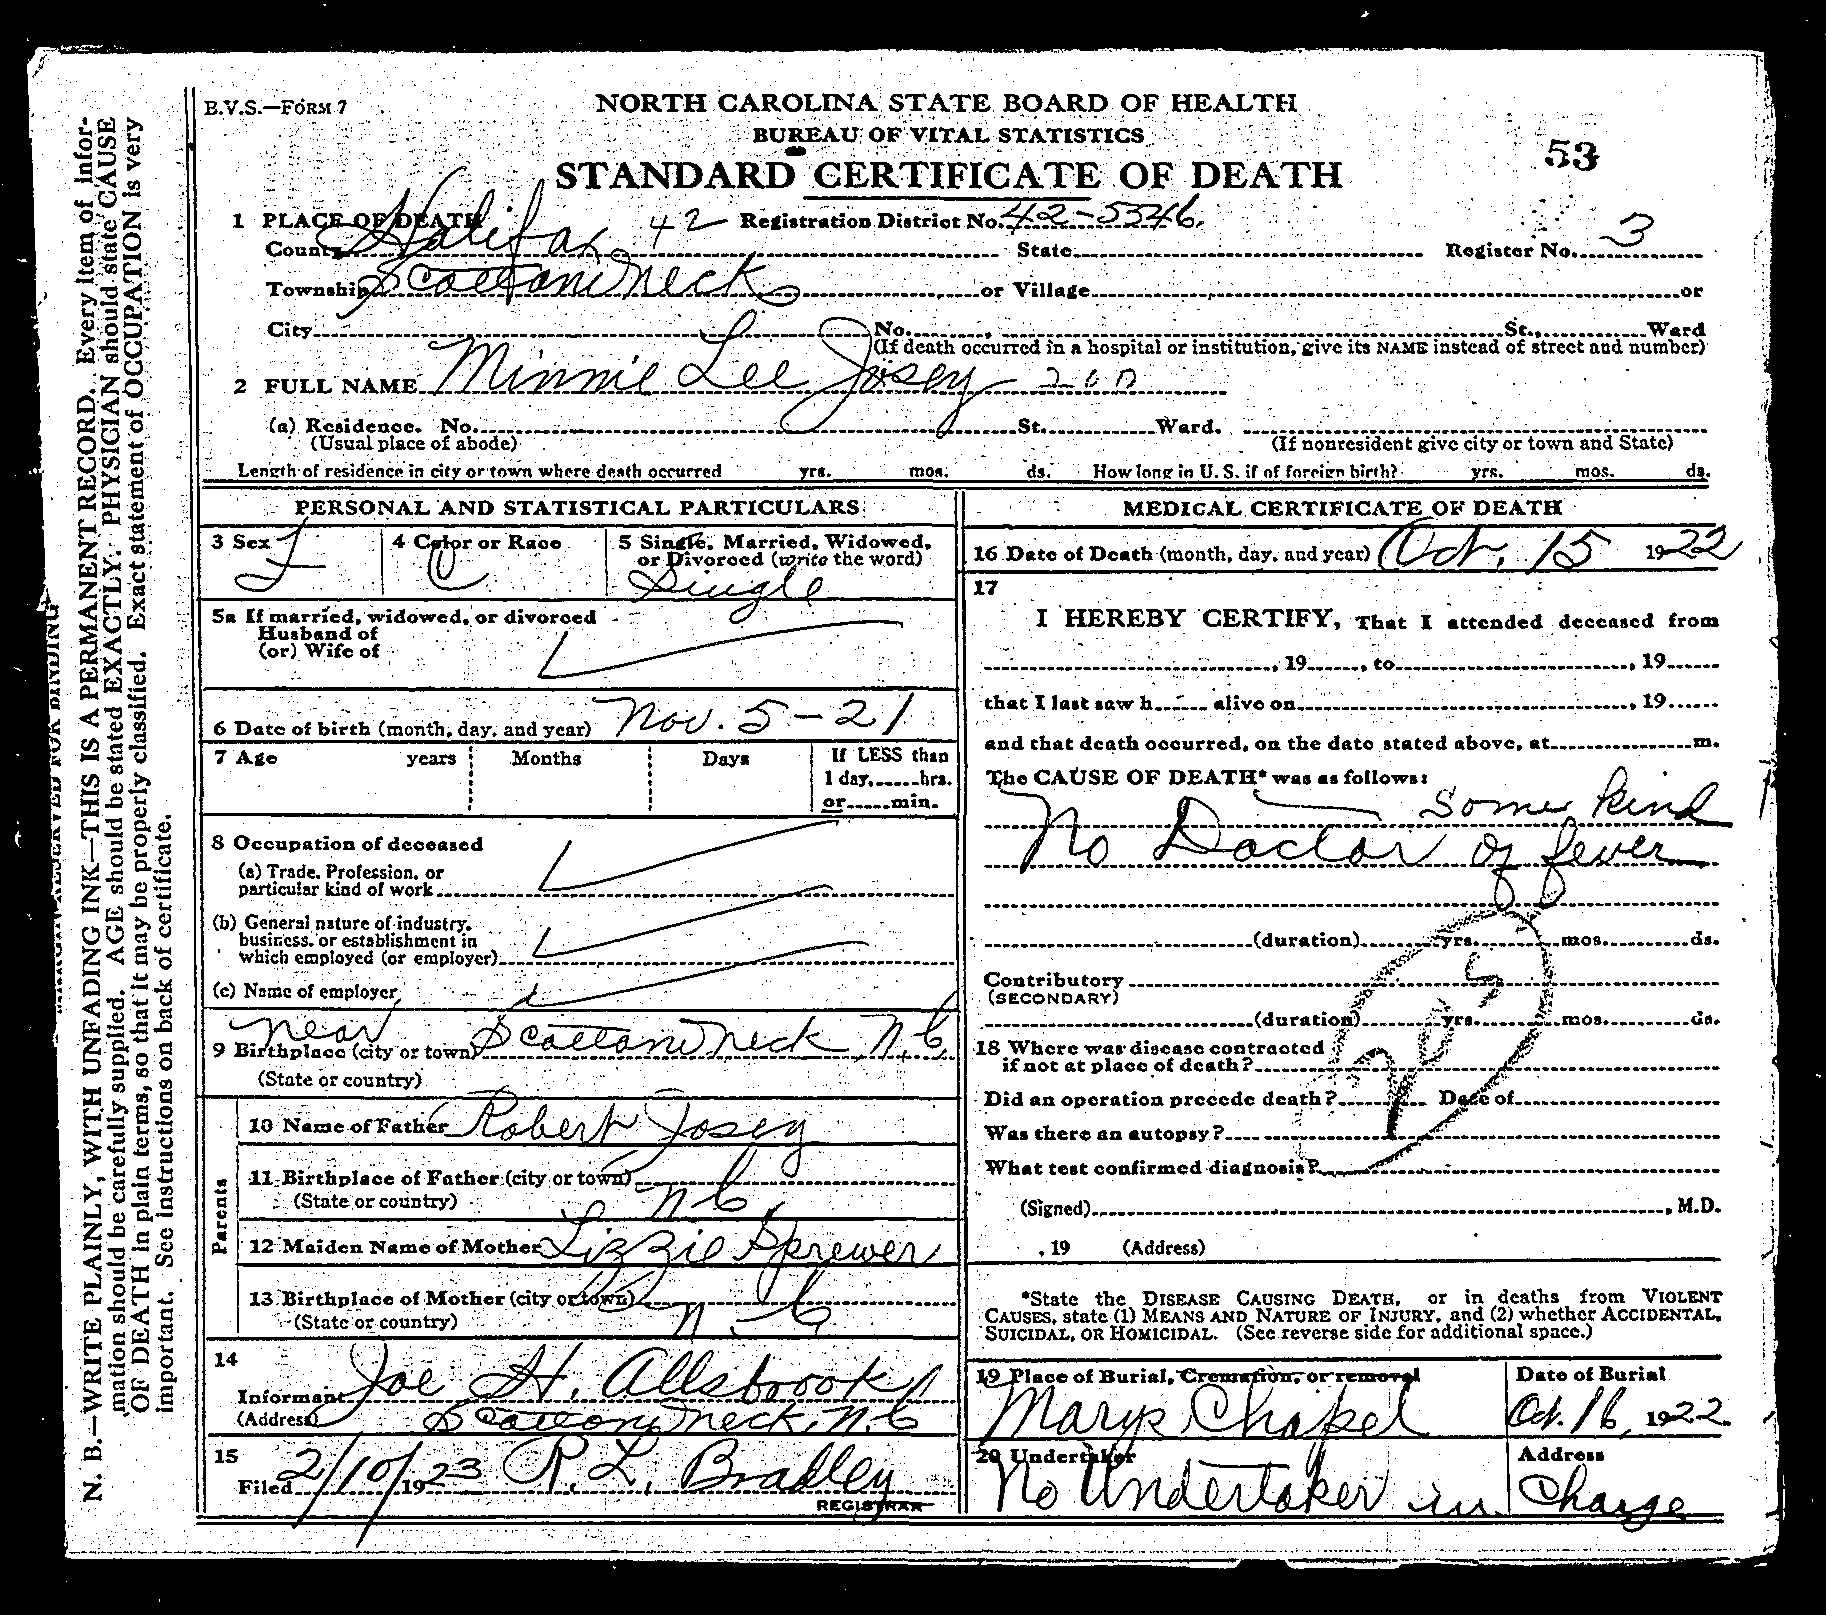 B.V.S.—FORM 7
NORTH CAROLINA STATE BOARD OF HEALTH
BUREAU OF VITAL STATISTICS
53
STANDARD CERTIFICATE OF DEATH
1 PLACE OF DEATH 42 Registration District No. 42-5546.
County Halifax State Register No. 3
Township Scotland Neck or Village or
City No. , St., Ward
(If death occurred in a hospital or institution, give its NAME instead of street and number)
2 FULL NAME Minnie Lee Josey
(a) Residence. No. St. Ward.
(Usual place of abode) (If nonresident give city or town and State)
Length of residence in city or town where death occurred yrs. mos. ds. How long in U. S. if of foreign birth? yrs. mos. ds.
PERSONAL AND STATISTICAL PARTICULARS
3 Sex F
4 Color or Race C
5 Single, Married, Widowed,
or Divorced (write the word)
Single
5a If married, widowed, or divorced
Husband of
(or) Wife of
6 Date of birth (month, day, and year) Nov. 5-21
7 Age years Months Days If LESS than
1 day,......hrs.
or......min.
8 Occupation of deceased
(a) Trade, Profession, or
particular kind of work
(b) General nature of industry,
business, or establishment in
which employed (or employer)
(c) Name of employer
near Scotland Neck, N.C.
9 Birthplace (city or town)
(State or country)
Parents
10 Name of Father Robert Josey
11 Birthplace of Father (city or town)
(State or country) N.C.
12 Maiden Name of Mother Lizzie Sprewer
13 Birthplace of Mother (city or town)
(State or country) N.C.
14
Informant Joe H. Allsbrook
(Address) Scotland Neck, N.C
15
Filed 2/10/1923 R. L. Bradley
REGISTRAR
MEDICAL CERTIFICATE OF DEATH
16 Date of Death (month, day, and year) Oct. 15 1922
17
I HEREBY CERTIFY, That I attended deceased from
, 19......, to , 19......
that I last saw h...... alive on , 19......
and that death occurred, on the date stated above, at m.
The CAUSE OF DEATH* was as follows:
Some kind
No Doctor of fever
(duration) yrs. mos. ds.
Contributory
(SECONDARY)
(duration) yrs. mos. ds.
205
18 Where was disease contracted
if not at place of death?
Did an operation precede death? Date of
Was there an autopsy?
What test confirmed diagnosis?
(Signed) , M.D.
, 19 (Address)
*State the DISEASE CAUSING DEATH, or in deaths from VIOLENT
CAUSES, state (1) MEANS AND NATURE OF INJURY, and (2) whether ACCIDENTAL,
SUICIDAL, OR HOMICIDAL. (See reverse side for additional space.)
19 Place of Burial, Cremation, or removal
Marys Chapel
Date of Burial
Oct. 16, 1922.
20 Undertaker
No Undertaker in
Address
Charge
N. B.—WRITE PLAINLY, WITH UNFADING INK—THIS IS A PERMANENT RECORD. Every item of infor-
mation should be carefully supplied. AGE should be stated EXACTLY. PHYSICIAN should state CAUSE
OF DEATH in plain terms, so that it may be properly classified. Exact statement of OCCUPATION is very
important. See instructions on back of certificate.